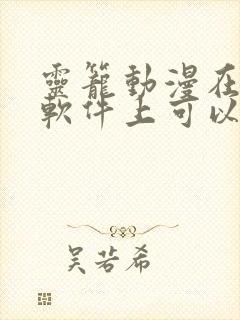 靈籠動漫在
軟件上可以
吳若希